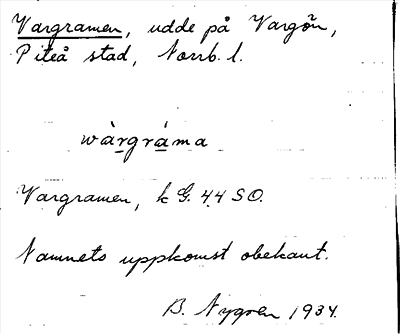 Vargramen, udde på Vargön,
Piteå stad, Norrb. l.
wàrgráma
Vargramen, k G. 44 SO.
Namnets uppkomst obekant.
B. Nygren 1934.